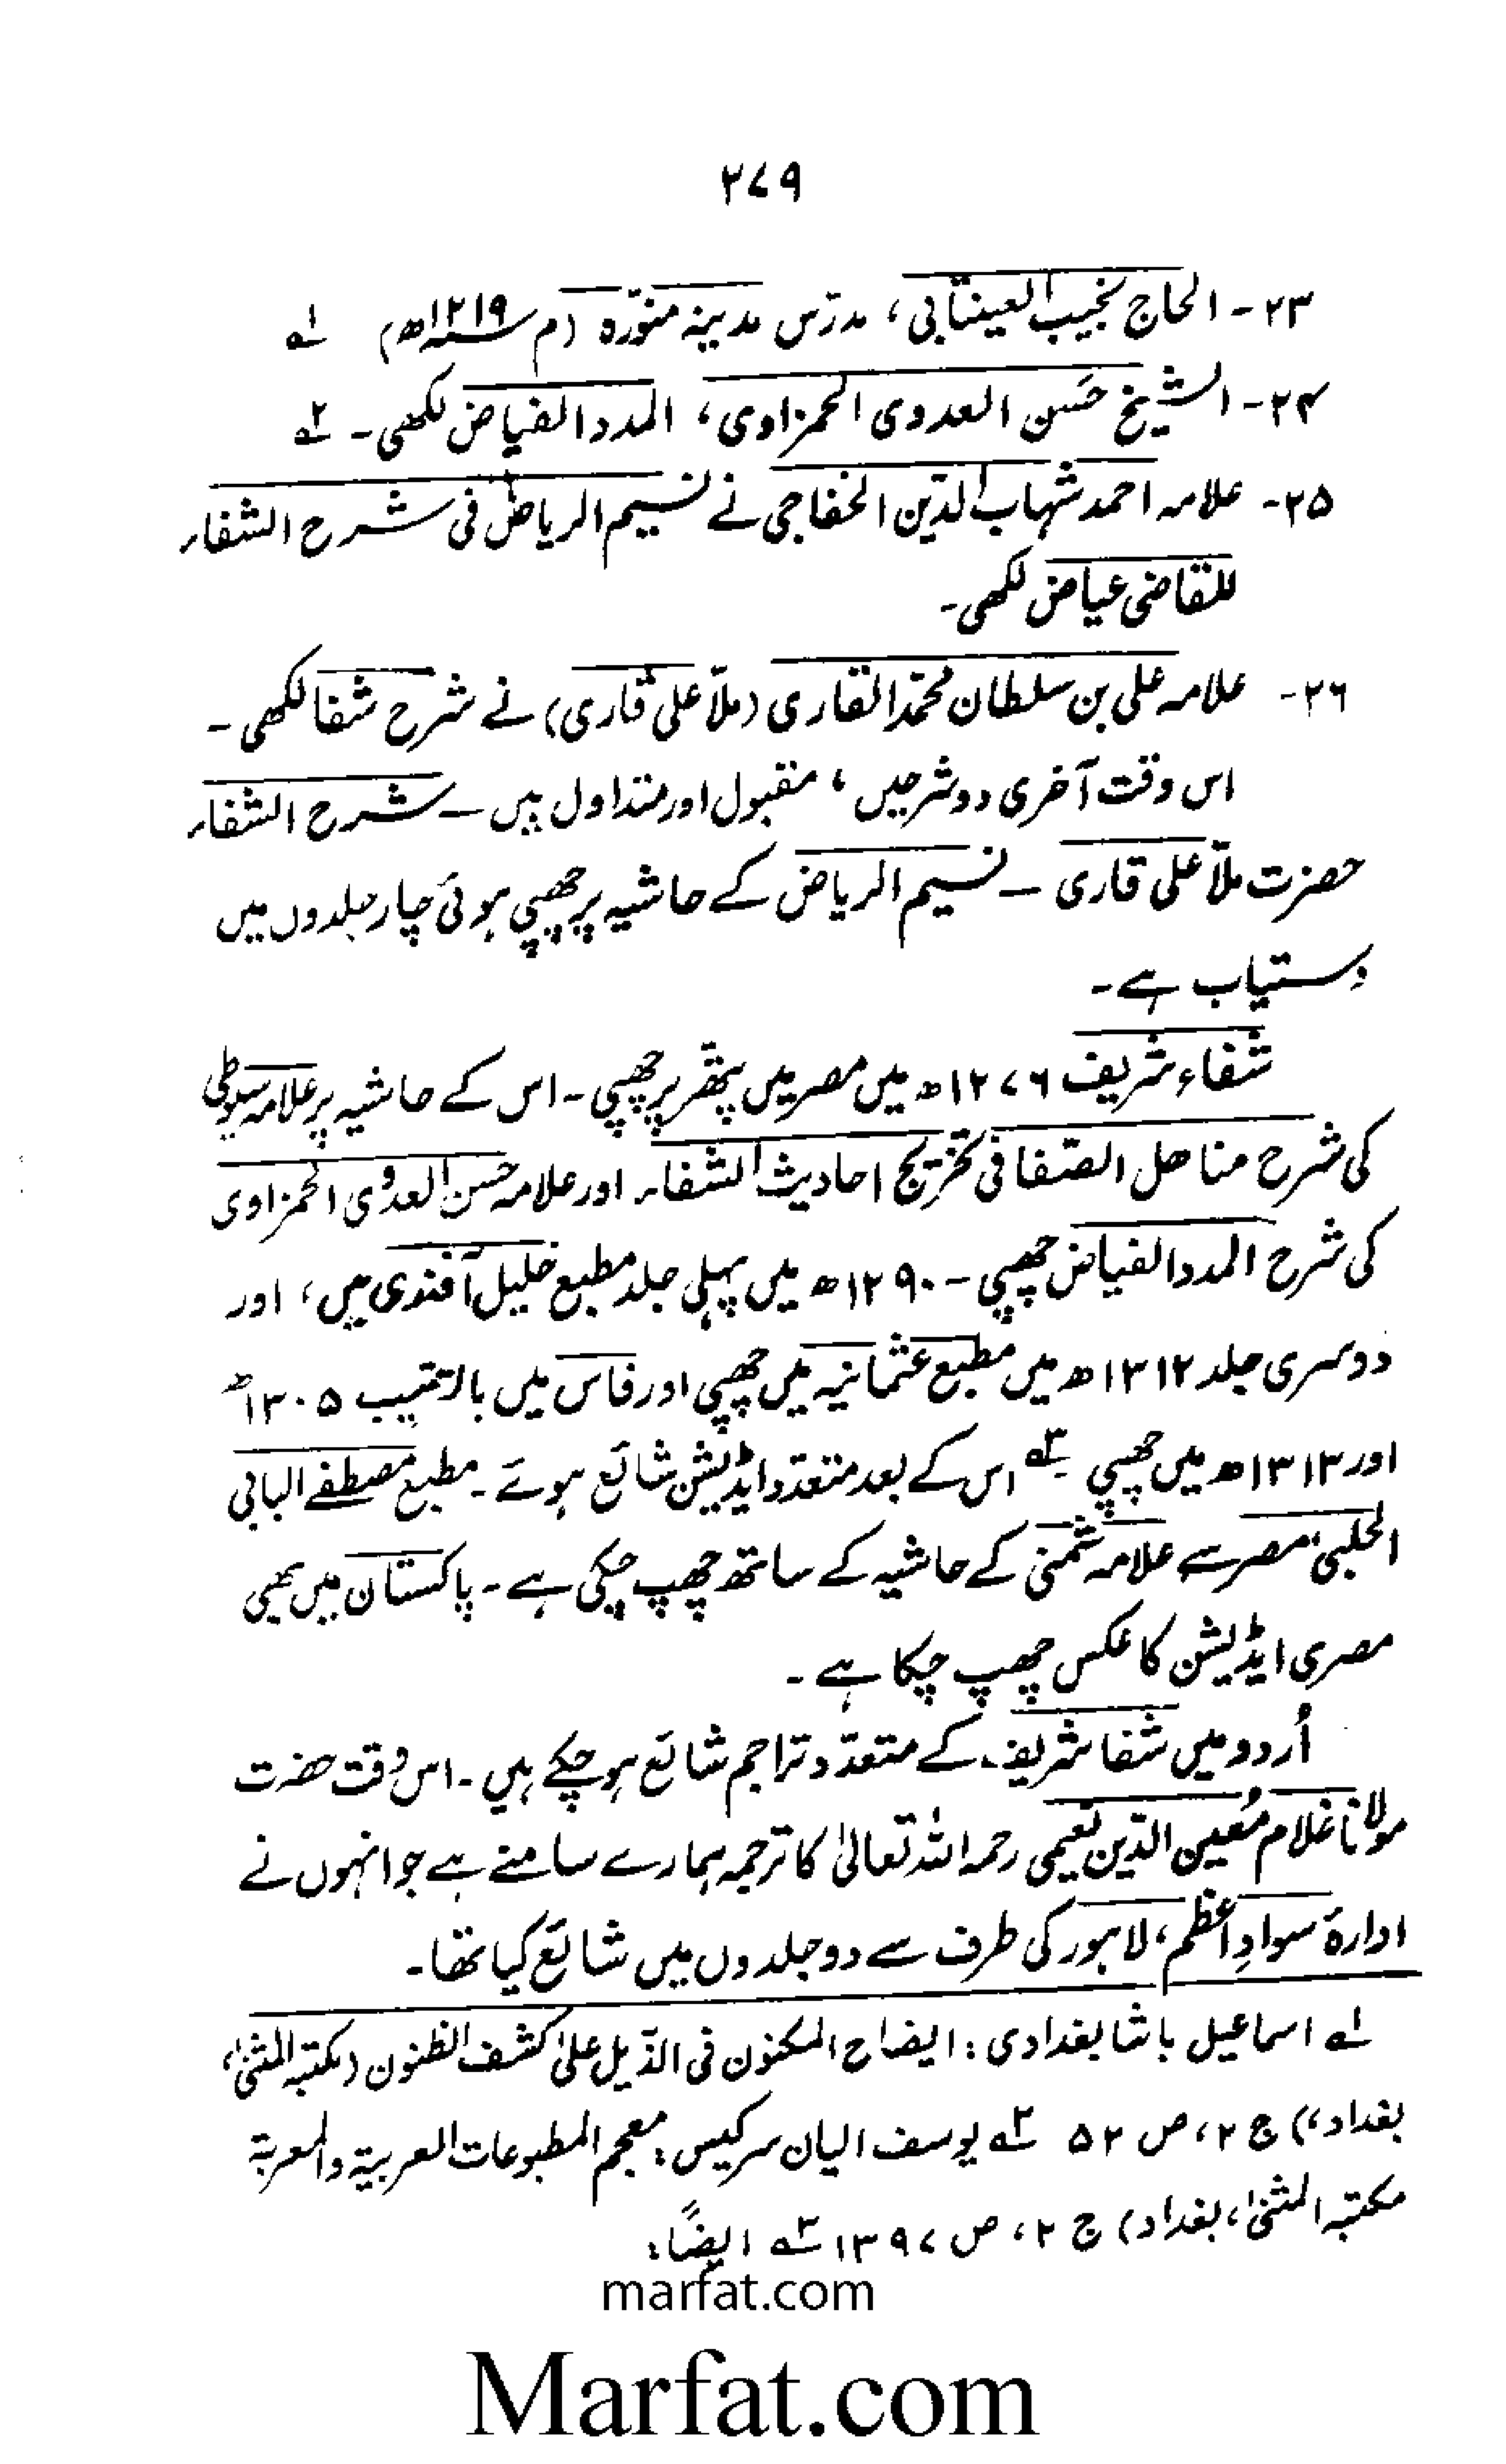 ۲۷۹
۲۳- الحاج نجیب العینتابی، مدرّس مدینہ منوّرہ (م ۱۲۱۹ھ) ۱؎
۲۴- الشیخ حَسن العدوی الحمزاوی، المدد الفیاض لکھی۔ ۲؎
۲۵- علامہ احمد شہاب الدّین الخفاجی نے نسیم الریاض فی شرح الشفاء
للقاضی عیاض لکھی۔
۲۶- علامہ علی بن سلطان محمّد القاری (ملّا علی قاری) نے شرح شفا لکھی۔
اس وقت آخری دو شرحیں، مقبول اور متداول ہیں — شرح الشفاء
حضرت ملّا علی قاری — نسیم الریاض کے حاشیہ پر چھپی ہوئی چار جلدوں میں
دستیاب ہے۔
شفاء شریف ۱۲۷۶ھ میں مصر میں پتھّر پر چھپی۔ اس کے حاشیہ پر علامہ سیوطی
کی شرح مناھل الصّفا فی تخریج احادیث الشفاء اور علامہ حسن العدوی الحمزاوی
کی شرح المدد الفیاض چھپی۔ ۱۲۹۰ھ میں پہلی جلد مطبع خلیل آفندی میں، اور
دوسری جلد ۱۳۱۲ھ میں مطبع عثمانیہ میں چھپی اور فاس میں بالترتیب ۱۳۰۵ھ
اور ۱۳۱۳ھ میں چھپی ۳؎ اس کے بعد متعدّد ایڈیشن شائع ہوئے۔ مطبع مصطفٰے البابی
الحلبی، مصر سے علامہ شمنی کے حاشیہ کے ساتھ چھپ چکی ہے۔ پاکستان میں بھی
مصری ایڈیشن کا عکس چھپ چکا ہے۔
اُردو میں شفا شریف کے متعدّد تراجم شائع ہو چکے ہیں۔ اس وقت حضرت
مولانا غلام مُعین الدّین نعیمی رحمہ اللہ تعالیٰ کا ترجمہ ہمارے سامنے ہے جو انہوں نے
ادارۂ سوادِ اعظم، لاہور کی طرف سے دو جلدوں میں شائع کیا تھا۔
۱؎ اسماعیل باشا بغدادی: ایضاح المکنون فی الذّیل علیٰ کشف الظنون (مکتبہ المثنیٰ،
بغداد،) ج ۲، ص ۵۲ ۲؎ یوسف الیان سرکیس: معجم المطبوعات العربیۃ والمعربۃ
مکتبہ المثنیٰ، بغداد) ج ۲، ص ۱۳۹۷ ۳؎ ایضًا:
marfat.com
Marfat.com